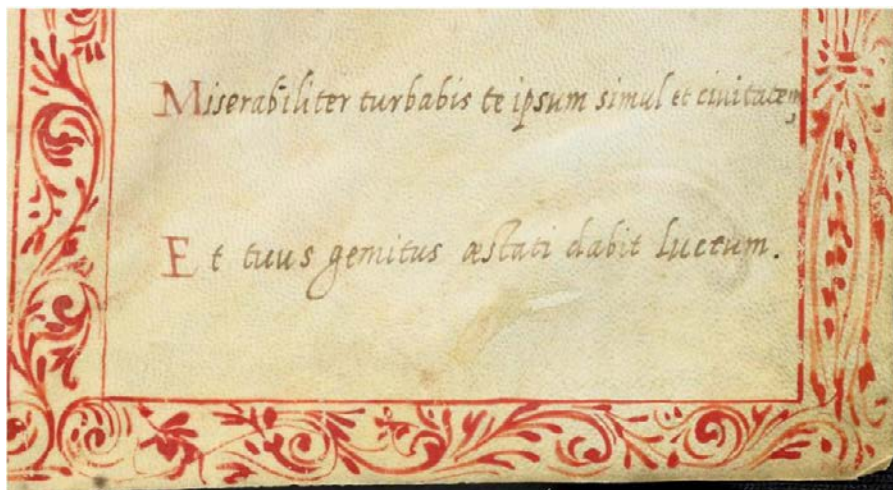 Miserabiliter turbabis te ipsum simul et ciuitatem
Et tuus gemitus æstati dabit luctum.